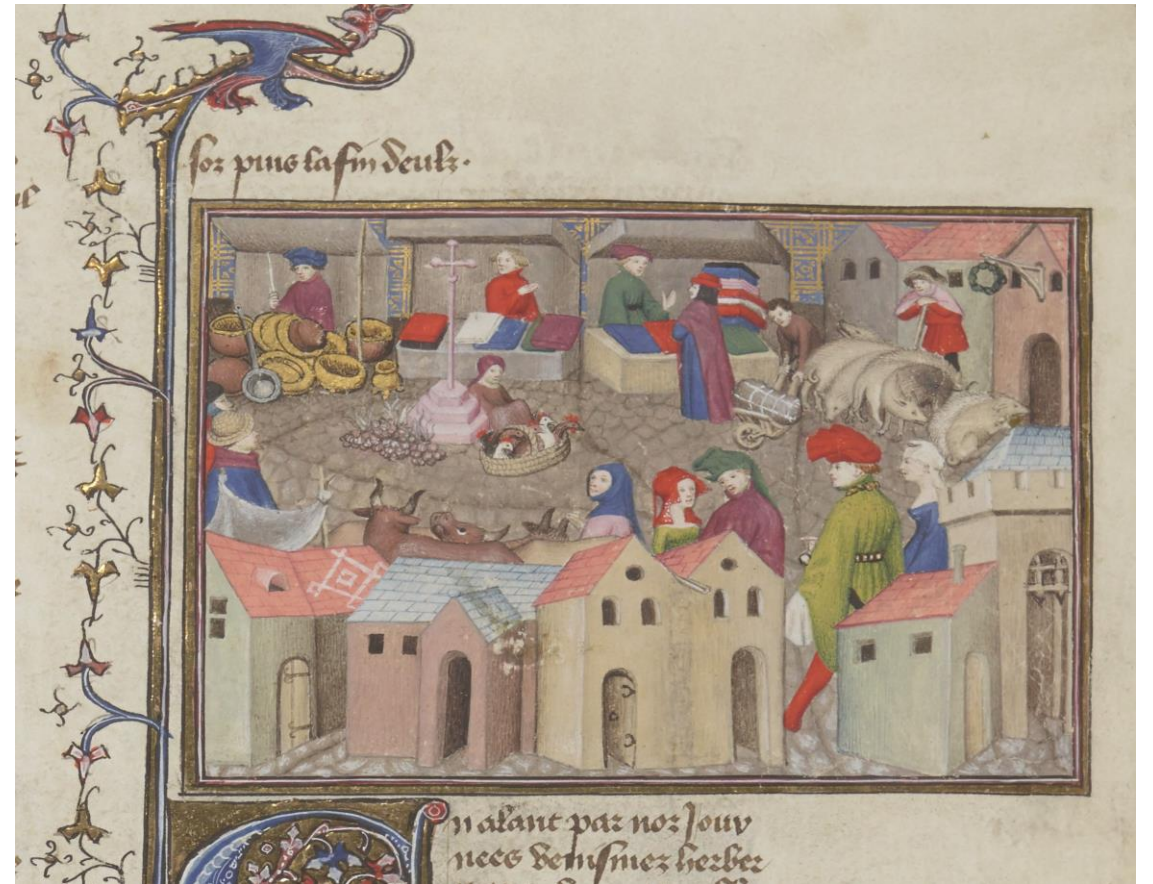 sor puis la fin deulz.
En alant par noz Jour
nees venismez herber